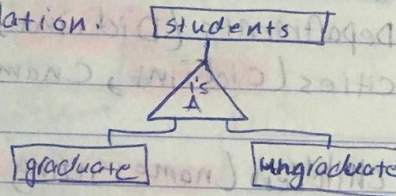 lation.
students
is
A
graduate
ungraduate